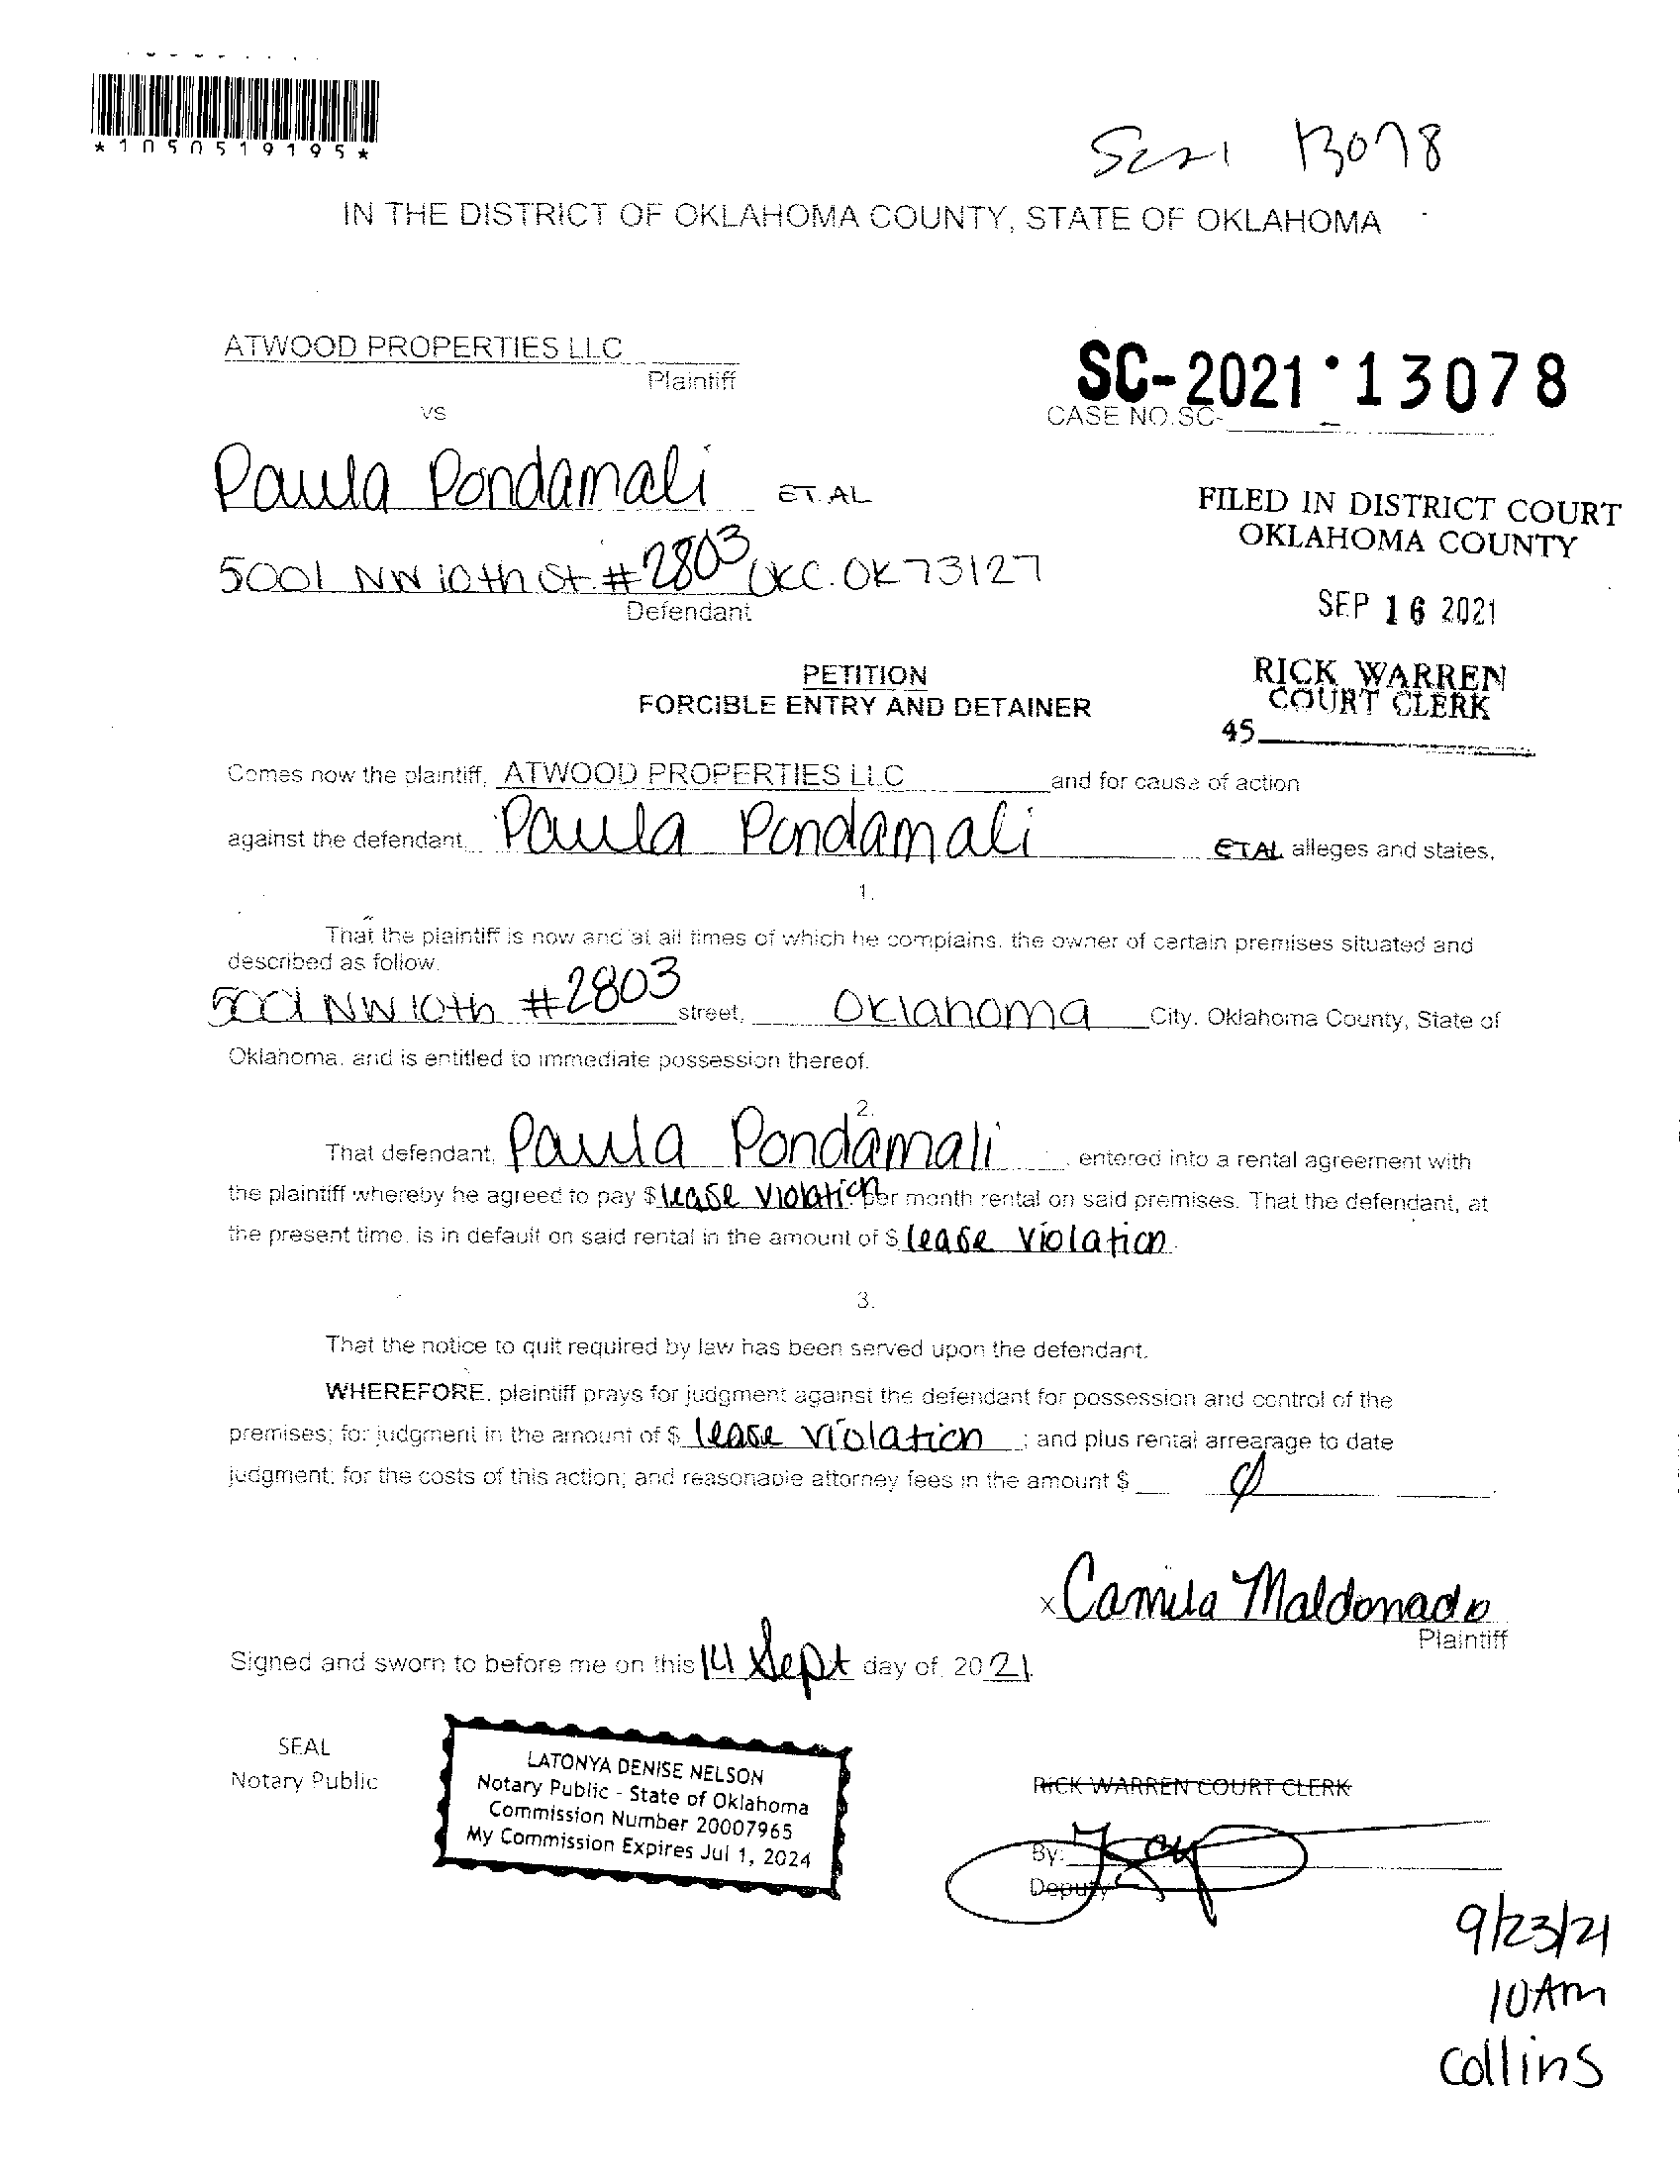 *1050519195*
SC21 13078
IN THE DISTRICT OF OKLAHOMA COUNTY, STATE OF OKLAHOMA
ATWOOD PROPERTIES LLC
Plaintiff
vs
SC-2021 · 13078
CASE NO.SC-
Paula Pondamali ET.AL
5001 NW 10th St. #2803 OKC. OK 73127
Defendant
FILED IN DISTRICT COURT
OKLAHOMA COUNTY
SEP 16 2021
RICK WARREN
COURT CLERK
45
PETITION
FORCIBLE ENTRY AND DETAINER
Comes now the plaintiff, ATWOOD PROPERTIES LLC and for cause of action
against the defendant, Paula Pondamali ETAL alleges and states,
1.
That the plaintiff is now and at all times of which he complains, the owner of certain premises situated and
described as follow.
5001 NW 10th #2803 street, Oklahoma City, Oklahoma County, State of
Oklahoma, and is entitled to immediate possession thereof.
2.
That defendant, Paula Pondamali, entered into a rental agreement with
the plaintiff whereby he agreed to pay $ lease violation per month rental on said premises. That the defendant, at
the present time, is in default on said rental in the amount of $ lease violation.
3.
That the notice to quit required by law has been served upon the defendant.
WHEREFORE, plaintiff prays for judgment against the defendant for possession and control of the
premises; for judgment in the amount of $ lease violation ; and plus rental arrearage to date
judgment; for the costs of this action; and reasonable attorney fees in the amount $ 0
x Camila Maldonado
Plaintiff
Signed and sworn to before me on this 14 Sept day of, 2021.
SEAL
Notary Public
LATONYA DENISE NELSON
Notary Public - State of Oklahoma
Commission Number 20007965
My Commission Expires Jul 1, 2024
RICK WARREN COURT CLERK
By:
Deputy
9/23/21
10AM
Collins